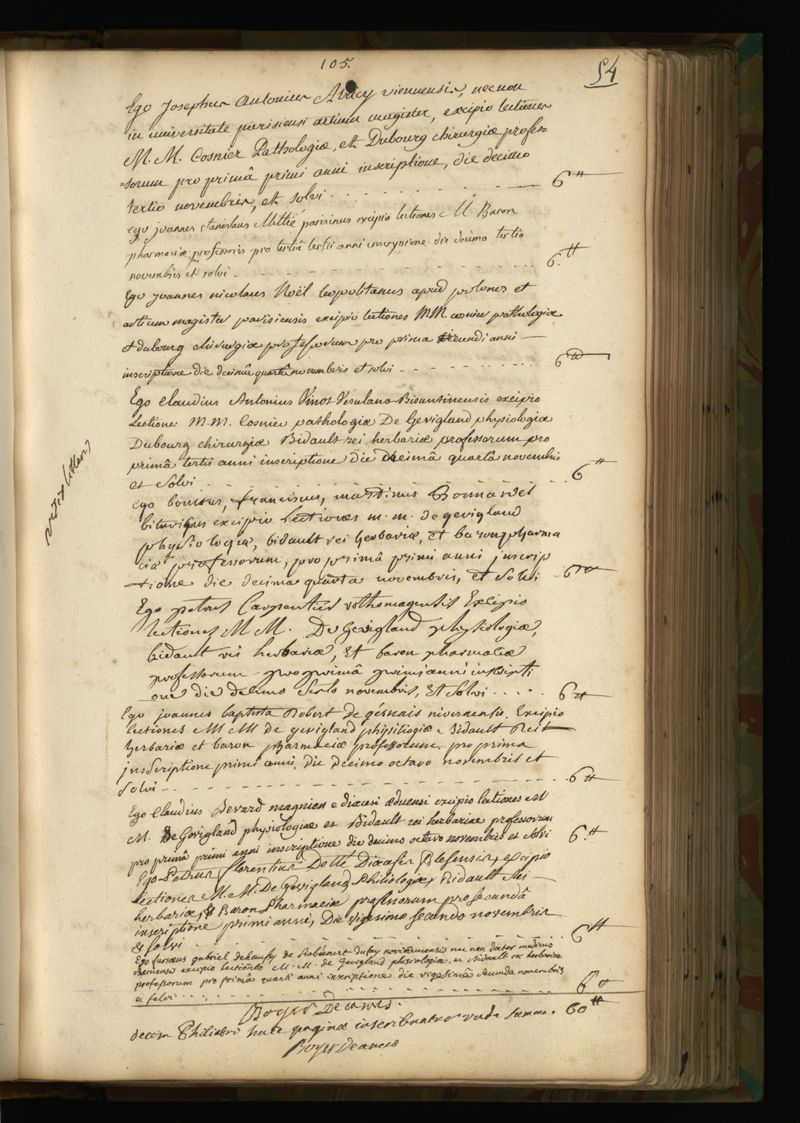 105.
54
Ego Josephus Antonius Aracy viennensis, nec non
in universitate parisiensi artium magister, excipio lectiones
M. M. Cosnier Pathologiæ, et Dubourg chirurgiæ profes=
=sorum pro primâ primi anni inscriptione, die decimo
tertio novembris, et solvi . . . . . . 6"
Ego joannes stanislaus Mittié parisinus excipio lectiones M Baron
pharmaciæ professoris pro tertiâ tertii anni inscriptione die decimo tertio
novembris et solvi . . . . . . 6.tt
Ego joannes nicolaus Noël leopolitanus apud polonos et
artium magister parisiensis excipio lectiones MM cosnier pathologiæ
et dubourg chirurgiæ professorum pro prima secundi anni
inscriptione die decimâ quartâ novembris et solvi . . . . . . 6tt
Ego Claudius Antonius Vinot Vesulano Bisuntinensis excipio
Lectiones M. M. Cosnier pathologiæ De Gevigland physiologiæ
Dubourg chirurgiæ Bidault rei herbariæ professorum pro
primâ tertii anni inscriptione die decimâ quartâ novembris
et Solvi . . . . . . 6tt
ego bonitus, franciscus, martinus Bonnardel
bituricus excipio lectiones m. m. de gevigland
physiologiæ, bidault rei herbariæ, et baron pharma
ciæ professorum, pro primâ primi anni inscrip
tione die decima quarta novembris, et solvi 6tt
Ego petrus Carpentier rothomagensis Excipio
lectiones M M. De Gevigland physiologiæ,
bidault rei herbariæ, Et baron pharmaciæ
professorum pro primâ primi anni inscripti
one die decimo sexto novembris, Et solvi . . . . . 6tt
Ego joannes baptista Robert de gésnais nivernensis. Excipio
lectiones M M de gevigland physiliogiæ Bidault Rei
herbariæ et baron pharmaciæ professorum pro prima
inscriptione primi anni, die decimo octavo novembris et
solvi . . . . . . 6tt
Ego Claudius Devard magnien e diœcesi æduensi excipio lectiones M
M. De Gevigland physiologiæ et Bidault rei herbariæ professorum
pro primâ primi anni inscriptione die decimo octavo novembris et solvi 6.tt
Ego Petrus florentius Dotté Diœcesis Blesensis, excipio
Lectiones M. M. De Gevigland Phisiologiæ, Bidault Rei
herbariæ, & Baron Pharmaciæ professorum pro secundâ
inscriptione primi anni, Die vigesimo secundo novembris
& solvi . . . . . . 6tt
Ego gabriel novi nec non doctor medicus
excipio lectiones M. M. de Gevigland physiologiæ, et Bidault rei herbariæ
professorum pro primâ quarti anni inscriptione die vigesimâ secunda novembris
et solvi . . . . . . 6tt
Boyer Decanus.
decem Philiatri hacce paginâ inscribuntur unde summa . 60tt
Boyer Decanus